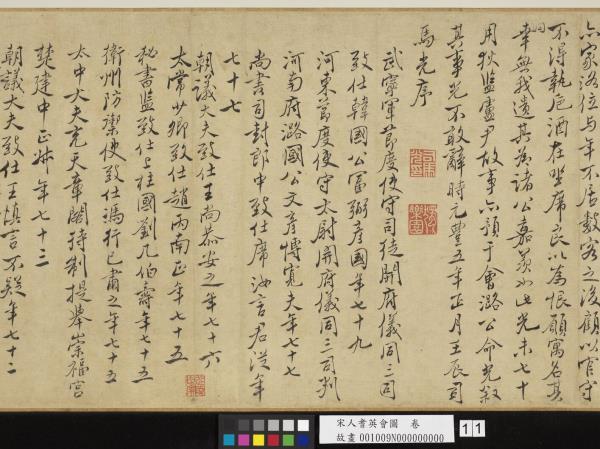 亦家洛位与年不居數客之後顧以官守
不得執卮酒在坐席良以為恨願寓名其
間幸無我遺其為諸公嘉羨如此光未七十
用狄監盧尹故事亦預于會潞公命光叙
其事光不敢辭時元豐五年正月壬辰司
馬光序
武寧軍節度使守司徒開府儀同三司
致仕韓國公富弼彥國年七十九
河東節度使守太尉開府儀同三司判
河南府潞國公文彥博寬夫年七十七
尚書司封郎中致仕席汝言君從年
七十七
朝議大夫致仕王尚恭安之年七十六
太常少卿致仕趙丙南正年七十五
秘書監致仕上柱國劉几伯壽年七十五
衛州防禦使致仕馮行己肅之年七十五
太中大夫充天章閣待制提舉崇福宮
楚建中正叔年七十三
朝議大夫致仕王慎言不疑年七十二
宋人耆英會圖 卷
故畫 001009N000000000
11